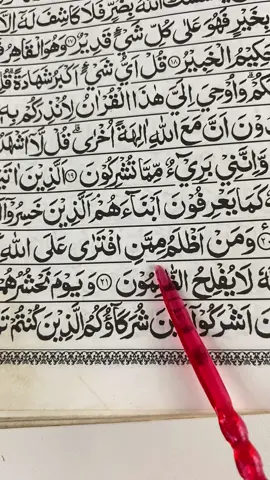 اللهُ بِضُرٍّ فَلَا كَاشِفَ لَهٗۤ
بِخَيْرٍ فَهُوَ عَلٰى كُلِّ شَيْءٍ قَدِيْرٌ ﴿۱۷﴾ وَهُوَ الْقَاهِرُ
حَكِيْمُ الْخَبِيْرُ ﴿۱۸﴾ قُلْ اَيُّ شَيْءٍ اَكْبَرُ شَهَادَةً قُلِ
كُمْ وَاُوْحِيَ اِلَيَّ هٰذَا الْقُرْاٰنُ لِاُنْذِرَكُمْ بِهٖ
دُوْنَ اَنَّ مَعَ اللهِ اٰلِهَةً اُخْرٰى قُلْ لَّاۤ اَشْهَدُ
وَّاِنَّنِيْ بَرِيْٓءٌ مِّمَّا تُشْرِكُوْنَ ﴿۱۹﴾ اَلَّذِيْنَ اٰتَيْ
كَمَا يَعْرِفُوْنَ اَبْنَآءَهُمْ اَلَّذِيْنَ خَسِرُوْۤا
﴿۲۰﴾ وَمَنْ اَظْلَمُ مِمَّنِ افْتَرٰى عَلَى اللهِ
هٗ لَا يُفْلِحُ الظّٰلِمُوْنَ ﴿۲۱﴾ وَيَوْمَ نَحْشُرُهُمْ
نَ اَشْرَكُوْۤا اَيْنَ شُرَكَآؤُكُمُ الَّذِيْنَ كُنْتُمْ تَزْ